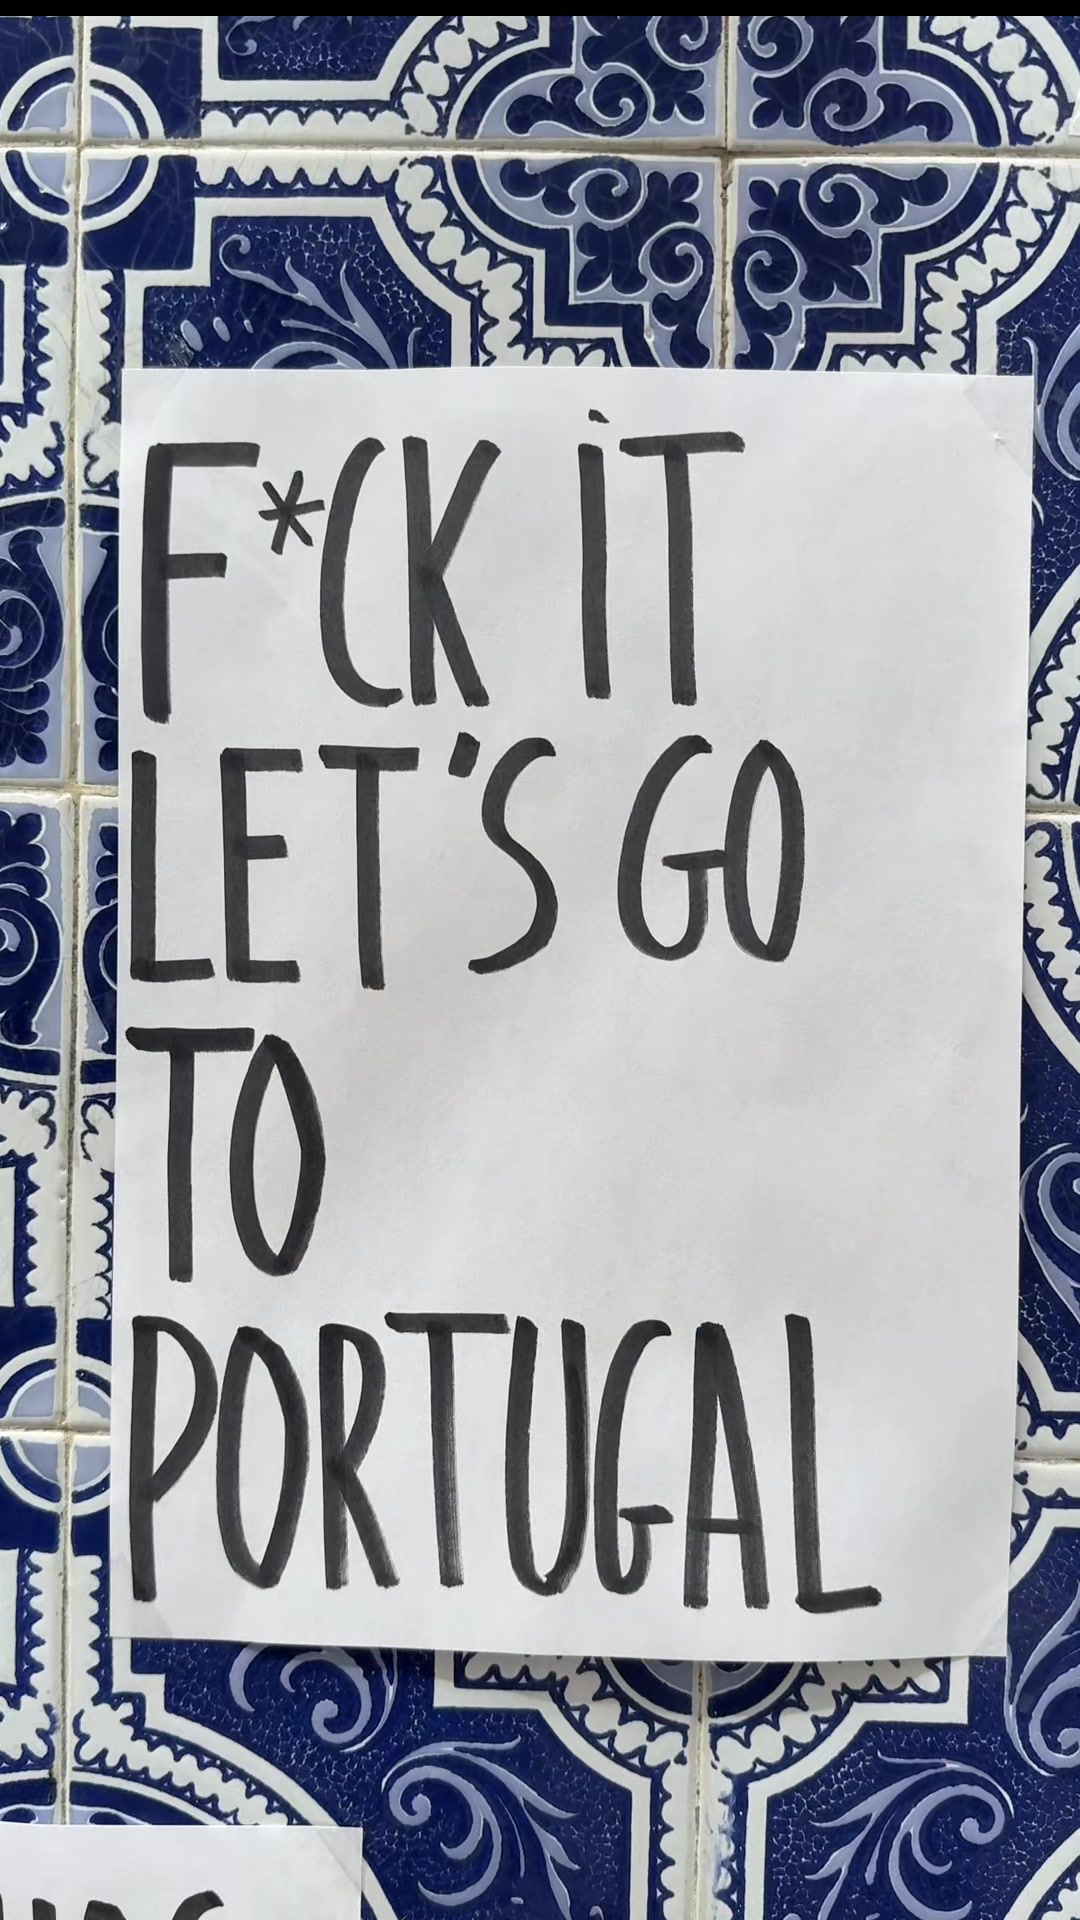 F*CK iT
LET'S GO
TO
PORTUGAL